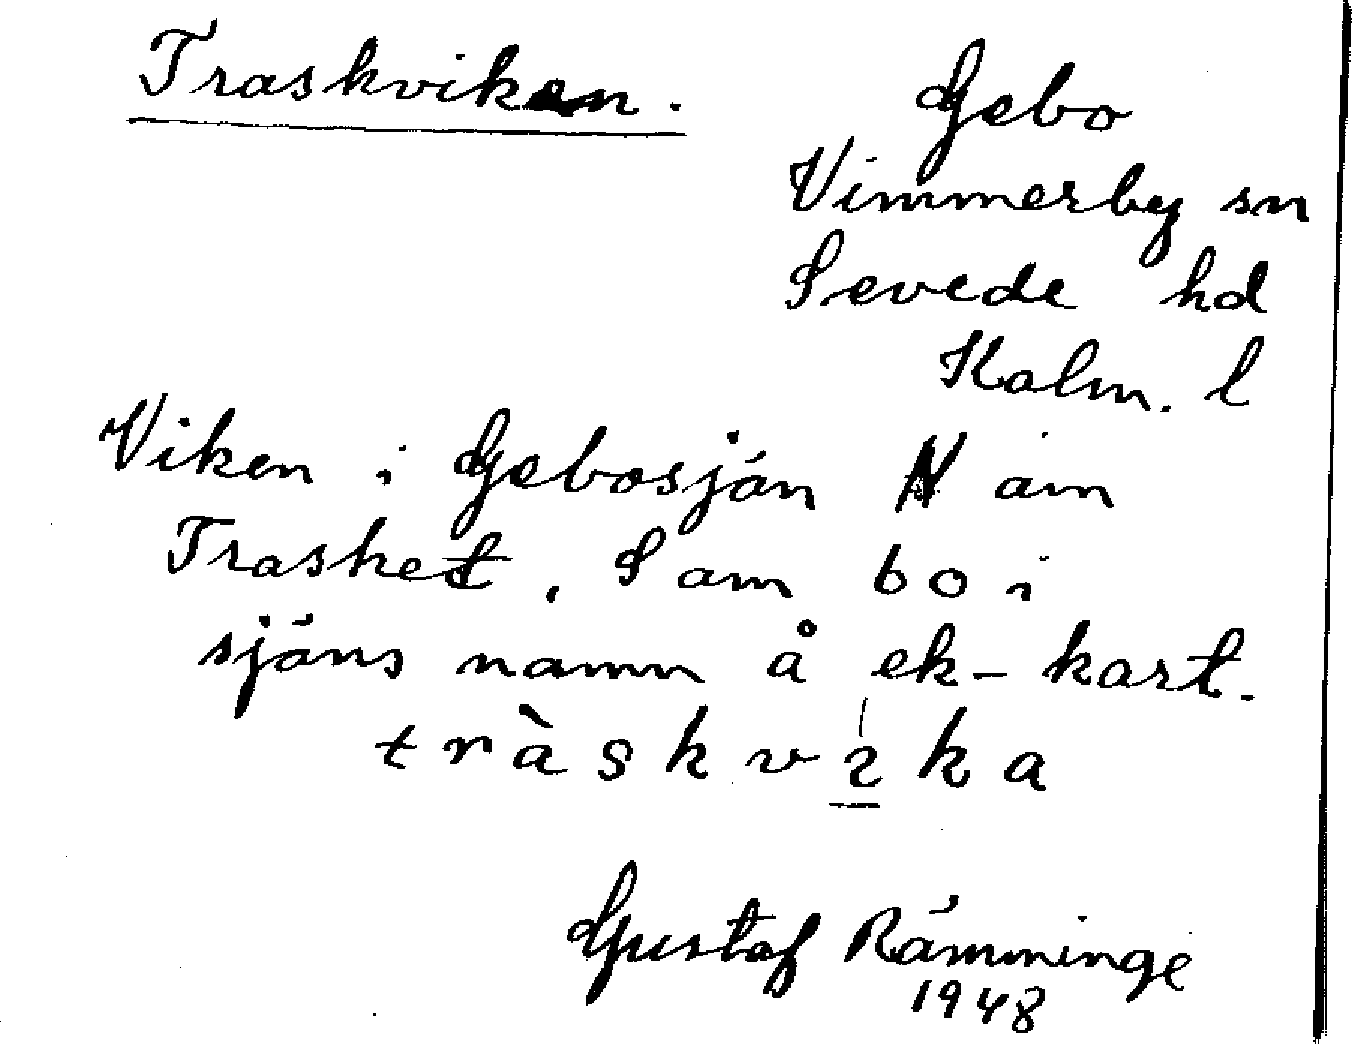 Traskviken.
Gebo
Vimmerby sn
Sevede hd
Kalm. l
Viken i Gebosjön N om
Trasket. Som bo i
sjöns namn å ek-kart.
tràskvika
Gustaf Rämminge
1948